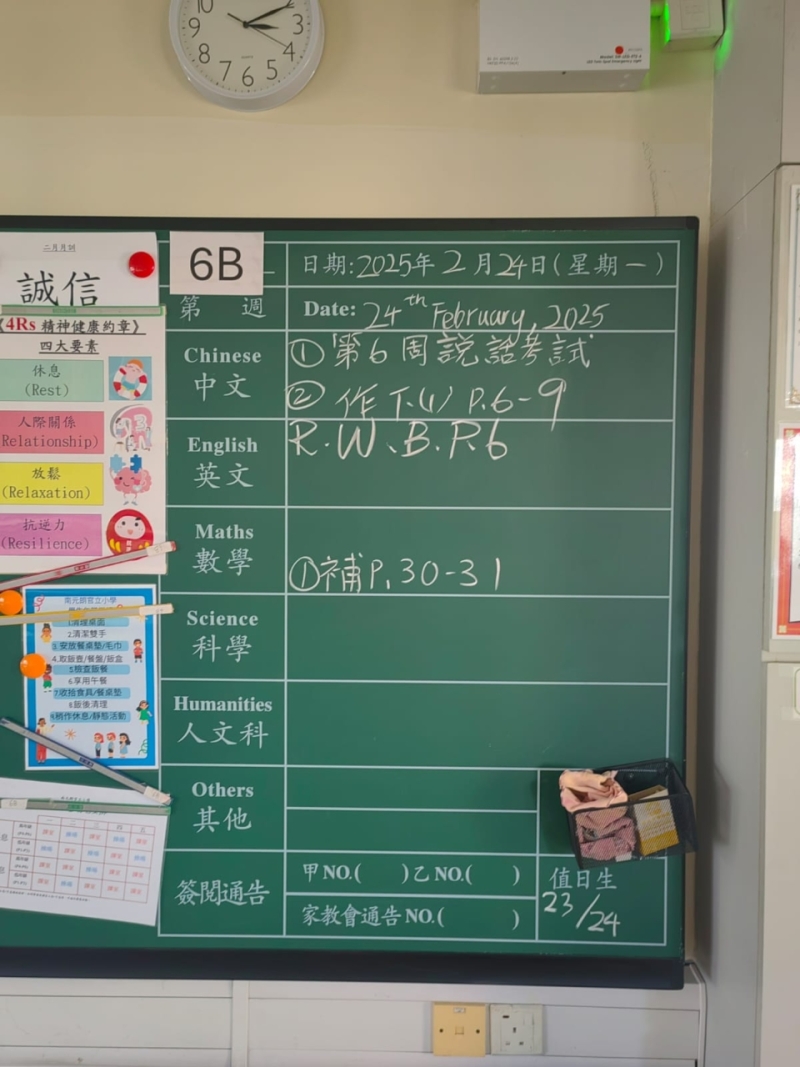 10
2
3
4
5
6
7
8
9
二月月訓
誠信
《4Rs 精神健康約章》
四大要素
休息
(Rest)
人際關係
(Relationship)
放鬆
(Relaxation)
抗逆力
(Resilience)
1.清理桌面
2.清潔雙手
3.安放餐桌墊/毛巾
4.取飯壺/餐盤/飯盒
5.檢查飯餐
6.享用午餐
7.收拾食具/餐桌墊
8.飯後清理
9.稍作休息/靜態活動
一 二 三 四 五
6B
日期:2025年2月24日(星期一)
第 週
Date: 24th February, 2025
Chinese
中文
①第6周説話考試
②作下(1) P.6-9
English
英文
R.W、B.P.6
Maths
數學
①補P.30-31
Science
科學
Humanities
人文科
Others
其他
簽閱通告
甲NO.( )乙NO.( )
家教會通告NO.( )
值日生
23/24